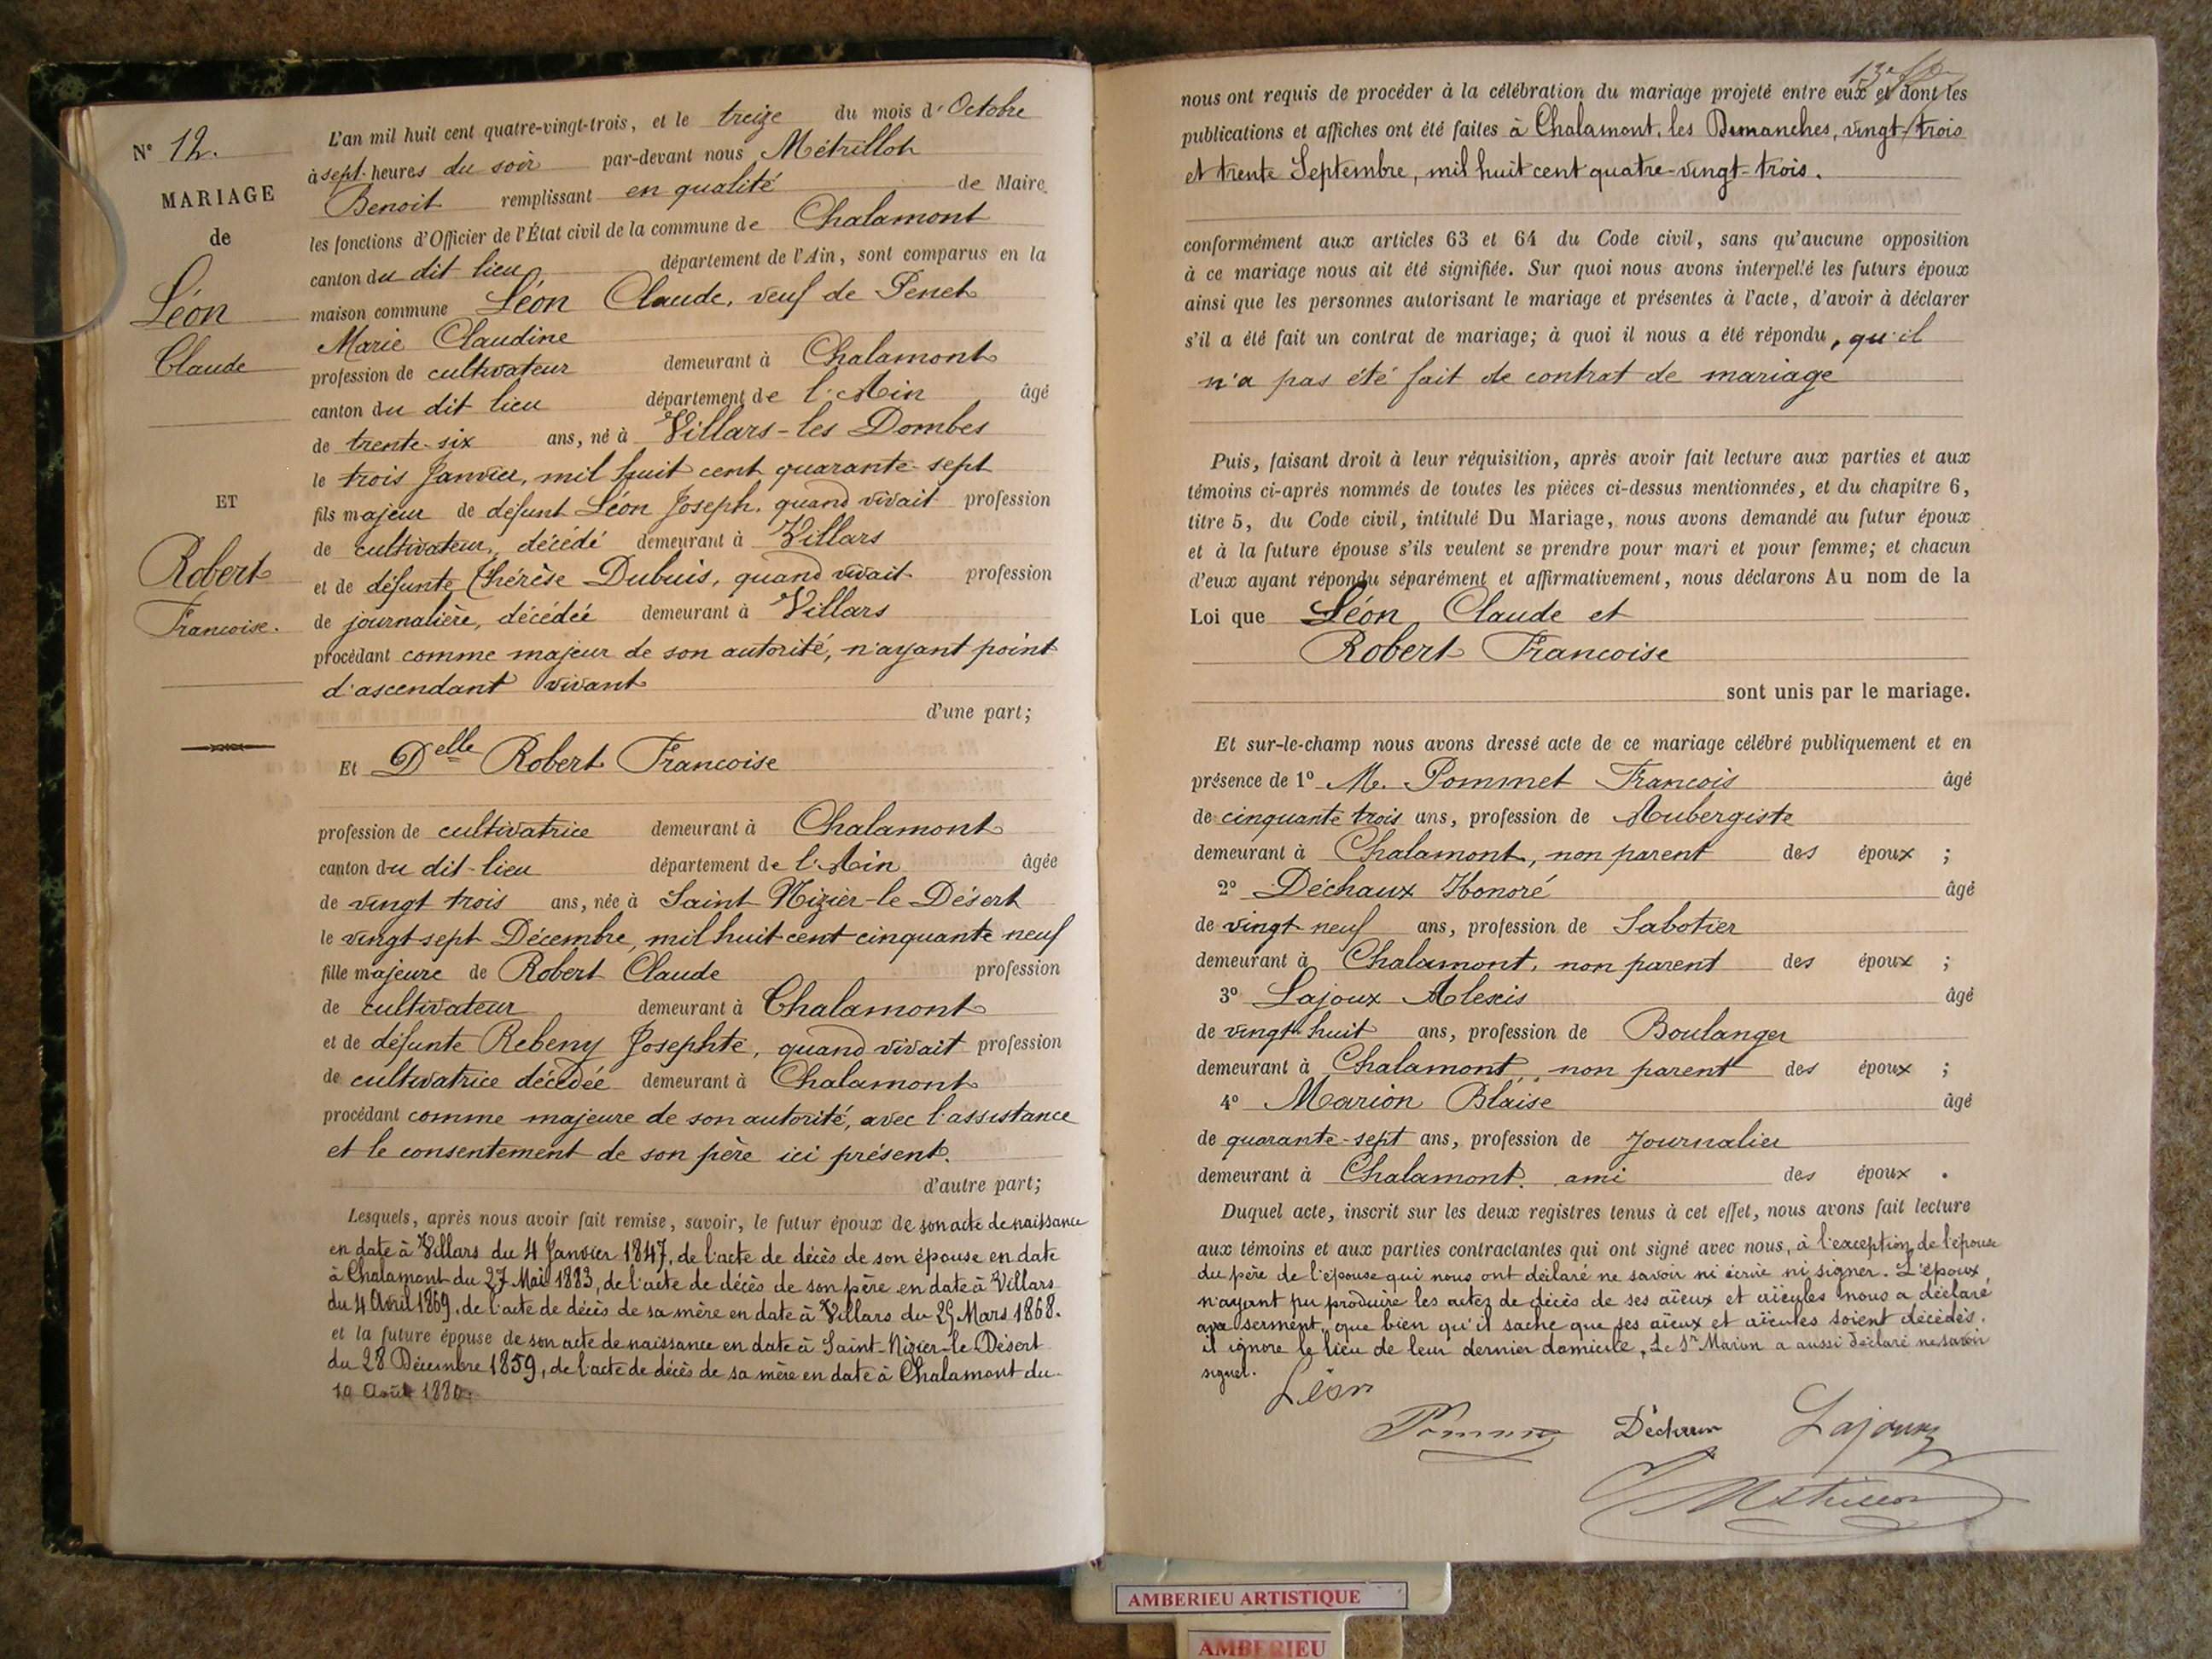 Nº 12.
MARIAGE
de
Léon
Claude
ET
Robert
Francoise.
L'an mil huit cent quatre-vingt-trois, et le treize du mois d'Octobre
à sept heures du soir par-devant nous Métrillot
Benoit remplissant en qualité de Maire
les fonctions d'Officier de l'État civil de la commune de Chalamont
canton du dit lieu département de l'Ain, sont comparus en la
maison commune Léon Claude, veuf de Penet
Marie Claudine
profession de cultivateur demeurant à Chalamont
canton du dit lieu département de l'Ain âgé
de trente-six ans, né à Villars-les Dombes
le trois Janvier, mil huit cent quarante-sept
fils majeur de défunt Léon Joseph, quand vivait profession
de cultivateur, décédé demeurant à Villars
et de défunte Thérèse Dubuis, quand vivait profession
de journalière, décédée demeurant à Villars
procédant comme majeur de son autorité, n'ayant point
d'ascendant vivant
d'une part;
Et Delle Robert Francoise
profession de cultivatrice demeurant à Chalamont
canton du dit-lieu département de l'Ain âgée
de vingt trois ans, née à Saint Nizier-le-Désert
le vingt-sept Décembre, mil huit cent cinquante neuf
fille majeure de Robert Claude profession
de cultivateur demeurant à Chalamont
et de défunte Rebeny Josephte, quand vivait profession
de cultivatrice décédée demeurant à Chalamont
procédant comme majeure de son autorité, avec l'assistance
et le consentement de son père ici présent.
d'autre part;
Lesquels, après nous avoir fait remise, savoir, le futur époux de son acte de naissance
en date à Villars du 4 Janvier 1847, de l'acte de décès de son épouse en date
à Chalamont du 27 Mai 1883, de l'acte de décès de son père en date à Villars
du 4 Avril 1869, de l'acte de décès de sa mère en date à Villars du 29 Mars 1868.
et la future épouse de son acte de naissance en date à Saint-Nizier-le-Désert
du 28 Décembre 1859, de l'acte de décès de sa mère en date à Chalamont du
Août 1880.
nous ont requis de procéder à la célébration du mariage projeté entre eux et dont les
publications et affiches ont été faites à Chalamont, les Dimanches, vingt-trois
et trente Septembre, mil huit cent quatre-vingt-trois.
conformément aux articles 63 et 64 du Code civil, sans qu'aucune opposition
à ce mariage nous ait été signifiée. Sur quoi nous avons interpellé les futurs époux
ainsi que les personnes autorisant le mariage et présentes à l'acte, d'avoir à déclarer
s'il a été fait un contrat de mariage; à quoi il nous a été répondu, qu'il
n'a pas été fait de contrat de mariage
Puis, faisant droit à leur réquisition, après avoir fait lecture aux parties et aux
témoins ci-après nommés de toutes les pièces ci-dessus mentionnées, et du chapitre 6,
titre 5, du Code civil, intitulé Du Mariage, nous avons demandé au futur époux
et à la future épouse s'ils veulent se prendre pour mari et pour femme; et chacun
d'eux ayant répondu séparément et affirmativement, nous déclarons Au nom de la
Loi que Léon Claude et
Robert Francoise
sont unis par le mariage.
Et sur-le-champ nous avons dressé acte de ce mariage célébré publiquement et en
présence de 1º M. Pommet Francois âgé
de cinquante trois ans, profession de Aubergiste
demeurant à Chalamont, non parent des époux ;
2º Déchaux Honoré âgé
de vingt neuf ans, profession de Sabotier
demeurant à Chalamont, non parent des époux ;
3º Lajoux Alexis âgé
de vingt-huit ans, profession de Boulanger
demeurant à Chalamont, non parent des époux ;
4º Marion Blaise âgé
de quarante-sept ans, profession de Journalier
demeurant à Chalamont, ami des époux .
Duquel acte, inscrit sur les deux registres tenus à cet effet, nous avons fait lecture
aux témoins et aux parties contractantes qui ont signé avec nous, à l'exception de l'épouse
du père de l'épouse qui nous ont déclaré ne savoir ni écrire ni signer. L'époux
n'ayant pu produire les actes de décès de ses aïeux et aïeules nous a déclaré
serment, que bien qu'il sache que ses aïeux et aïeules soient décédés,
il ignore le lieu de leur dernier domicile. Le Sr Marion a aussi déclaré ne savoir
signer.
Léon
Déchaux Lajoux
AMBERIEU ARTISTIQUE
AMBERIEU